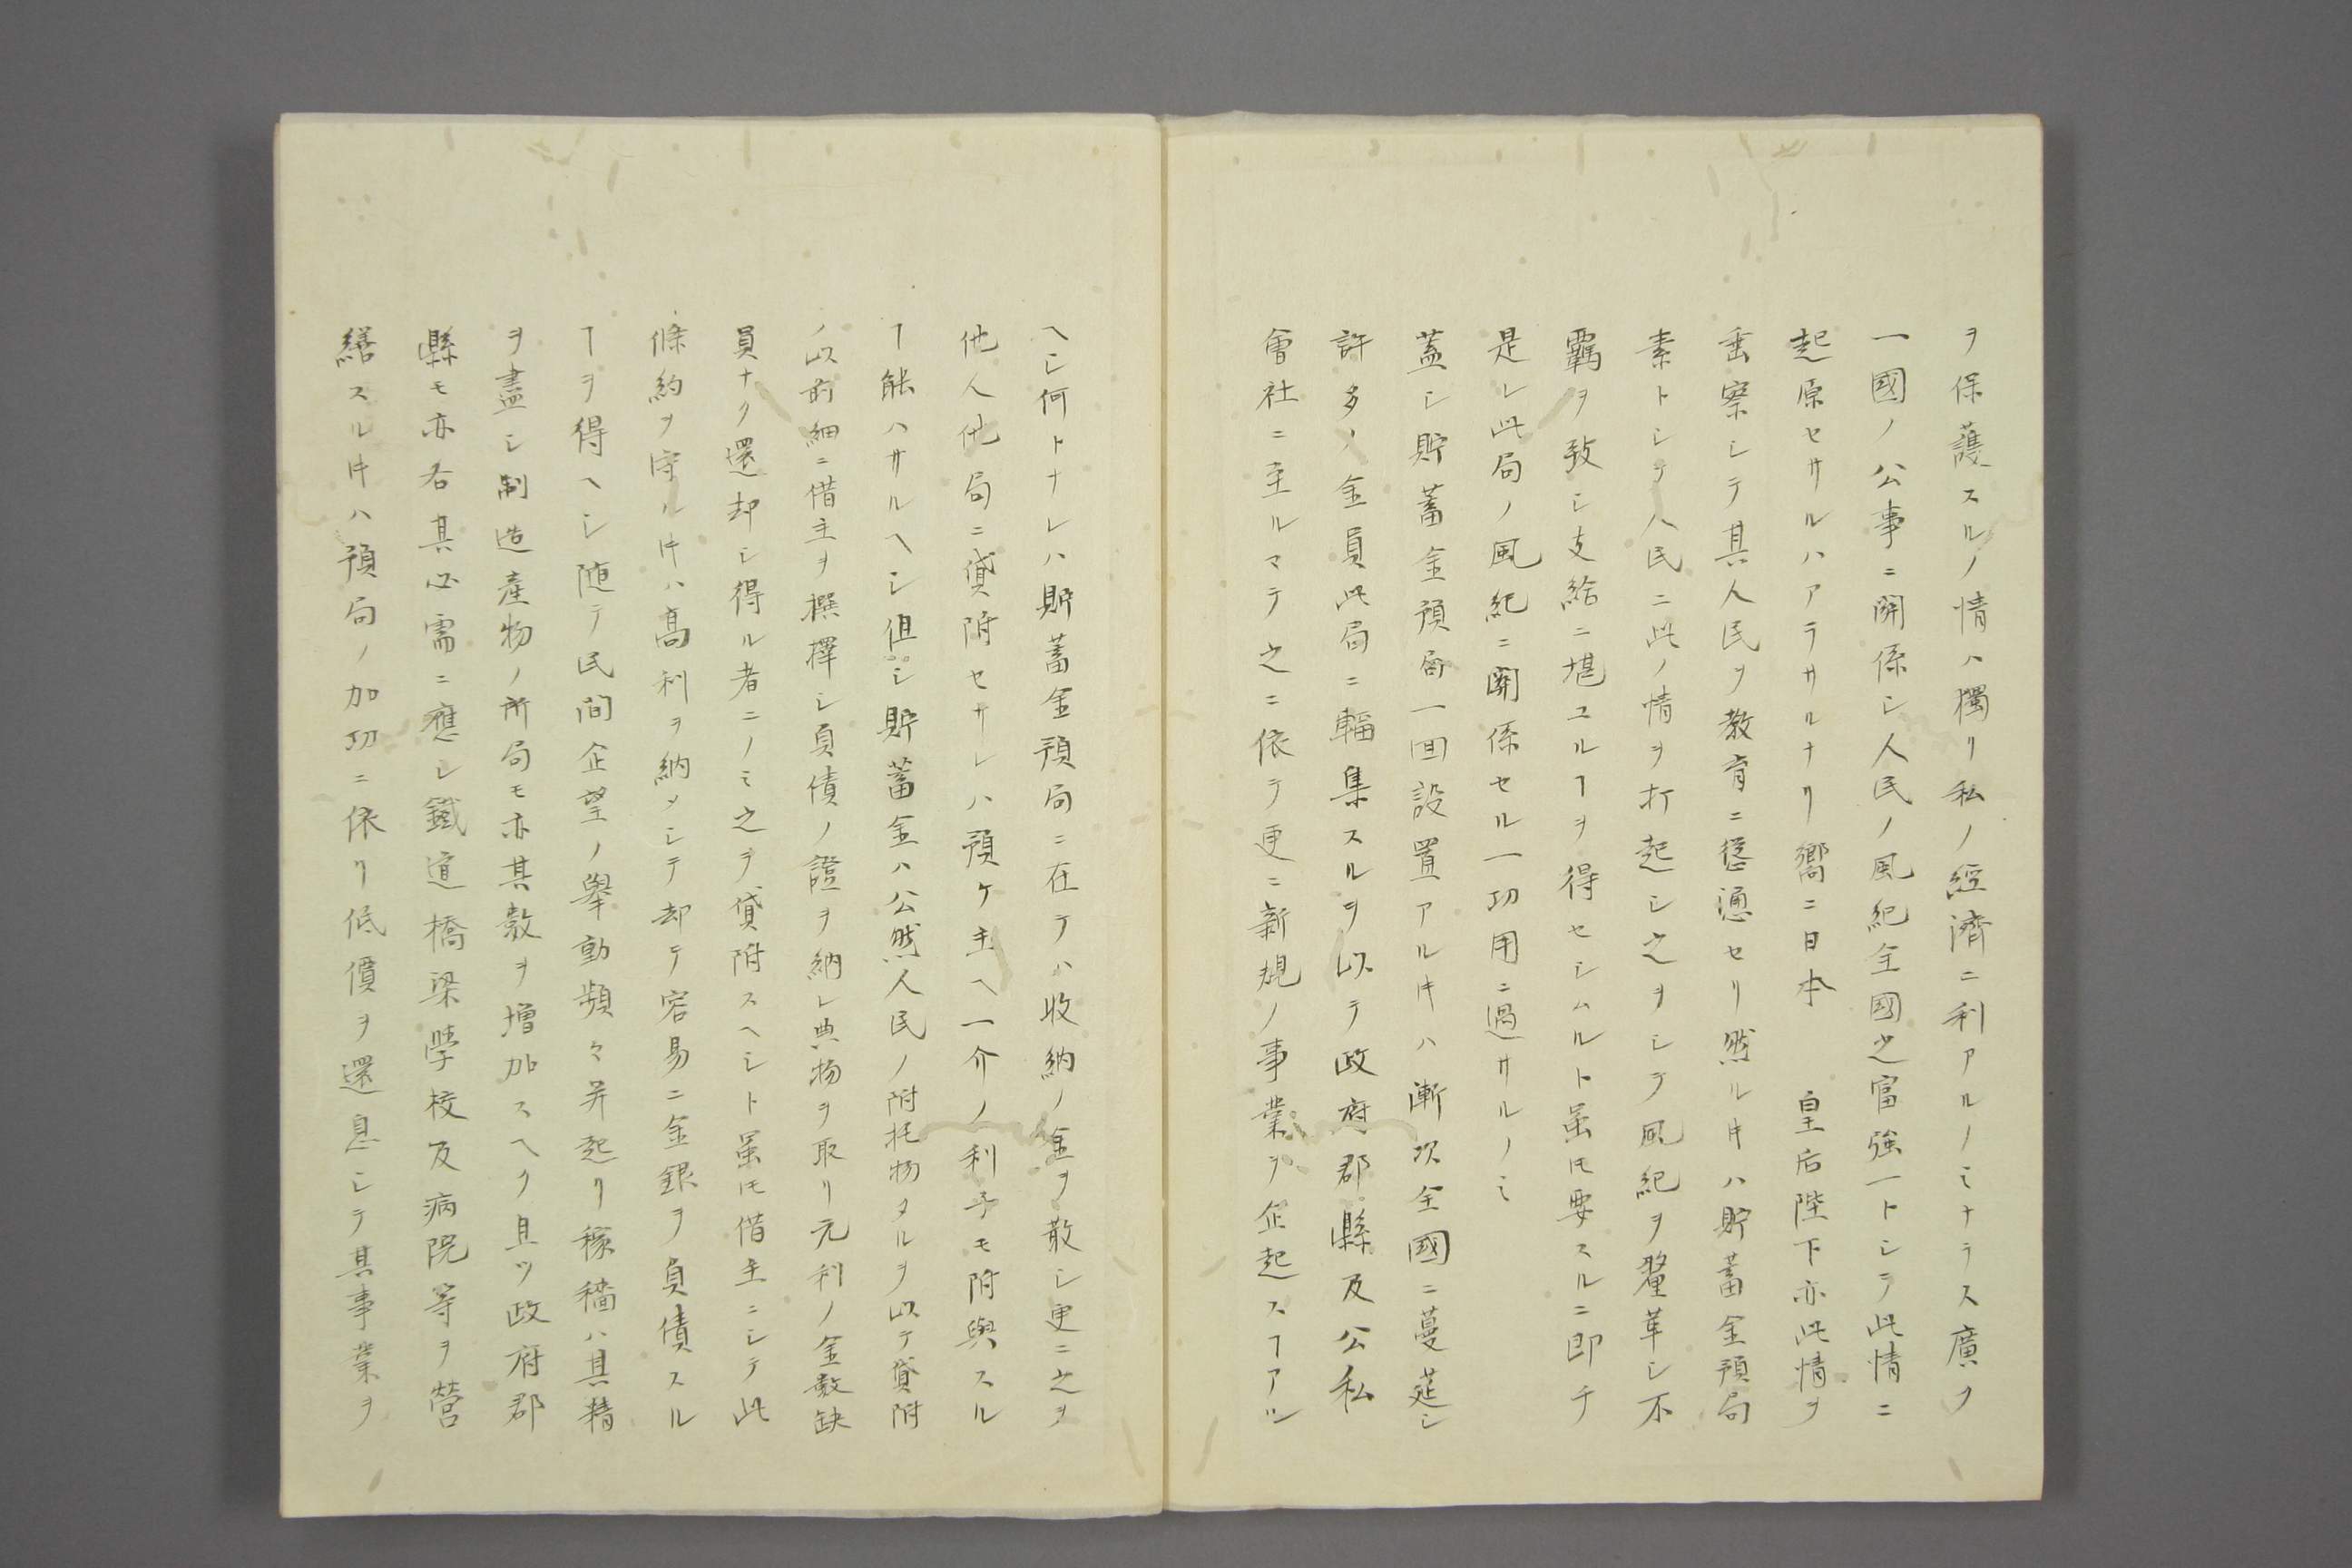 ヲ保護スルノ情ハ獨リ私ノ經濟ニ利アルノミナラス廣ク
一國ノ公事ニ関係シ人民ノ風紀全國之冨強一トシテ此情ニ
起原セサルハアラサルナリ嚮ニ日本　皇后陛下亦此情ヲ
垂察シテ其人民ヲ教育ニ慫慂セリ然ル𪜈ハ貯蓄金預局
素トシテ人民ニ此ノ情ヲ打起シ之ヲシテ風紀ヲ釐革シ不
羈ヲ致シ支給ニ堪ユルヿヲ得セシムルト虽𪜈要スルニ即チ
是レ此局ノ風紀ニ關係セル一功用ニ過サルノミ
蓋シ貯蓄金預局一回設置アル𪜈ハ漸次全國ニ蔓莚シ
許多ノ金員此局ニ輻集スルヲ以テ政府郡縣及公私
會社ニ至ルマテ之ニ依テ更ニ新規ノ事業ヲ企起スヿアツ
ヘシ何トナレハ貯蓄金預局ニ在テハ收納ノ金ヲ散シ更ニ之ヲ
他人他局ニ貸附セサレハ預ケ主ヘ一介ノ利子モ附與スル
ヿ能ハサルヘシ但シ貯蓄金ハ公然人民ノ附托物タルヲ以テ貸附
ノ以前細ニ借主ヲ撰擇シ負債ノ證ヲ納レ典物ヲ取リ元利ノ金数缺
員ナク還却シ得ル者ニノミ之ヲ貸附スヘシト虽𪜈借主ニシテ此
條約ヲ守ル𪜈ハ高利ヲ納メシテ却テ容易ニ金銀ヲ負債スル
ヿヲ得ヘシ随テ民間企望ノ舉動頻々并起リ稼穡ハ其精
ヲ盡シ制造産物ノ所局モ亦其数ヲ増加スヘク且ツ政府郡
縣モ亦右其必需ニ應シ鐵道橋梁學校及病院等ヲ營
繕スル𪜈ハ預局ノ加功ニ依リ低價ヲ還息シテ其事業ヲ